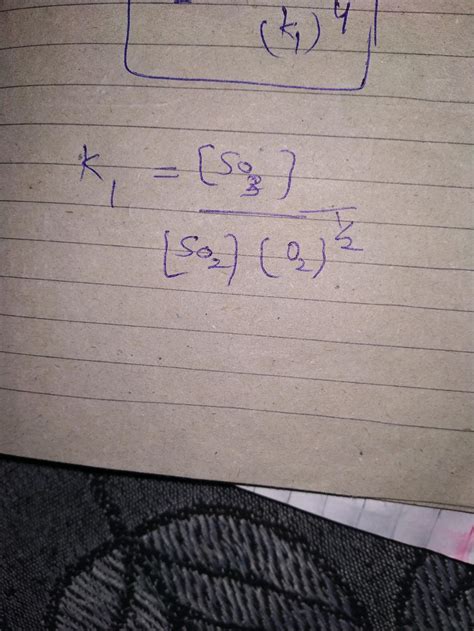 (k₁)⁴
K₁ = [So₃]
[So₂] (O₂)^½